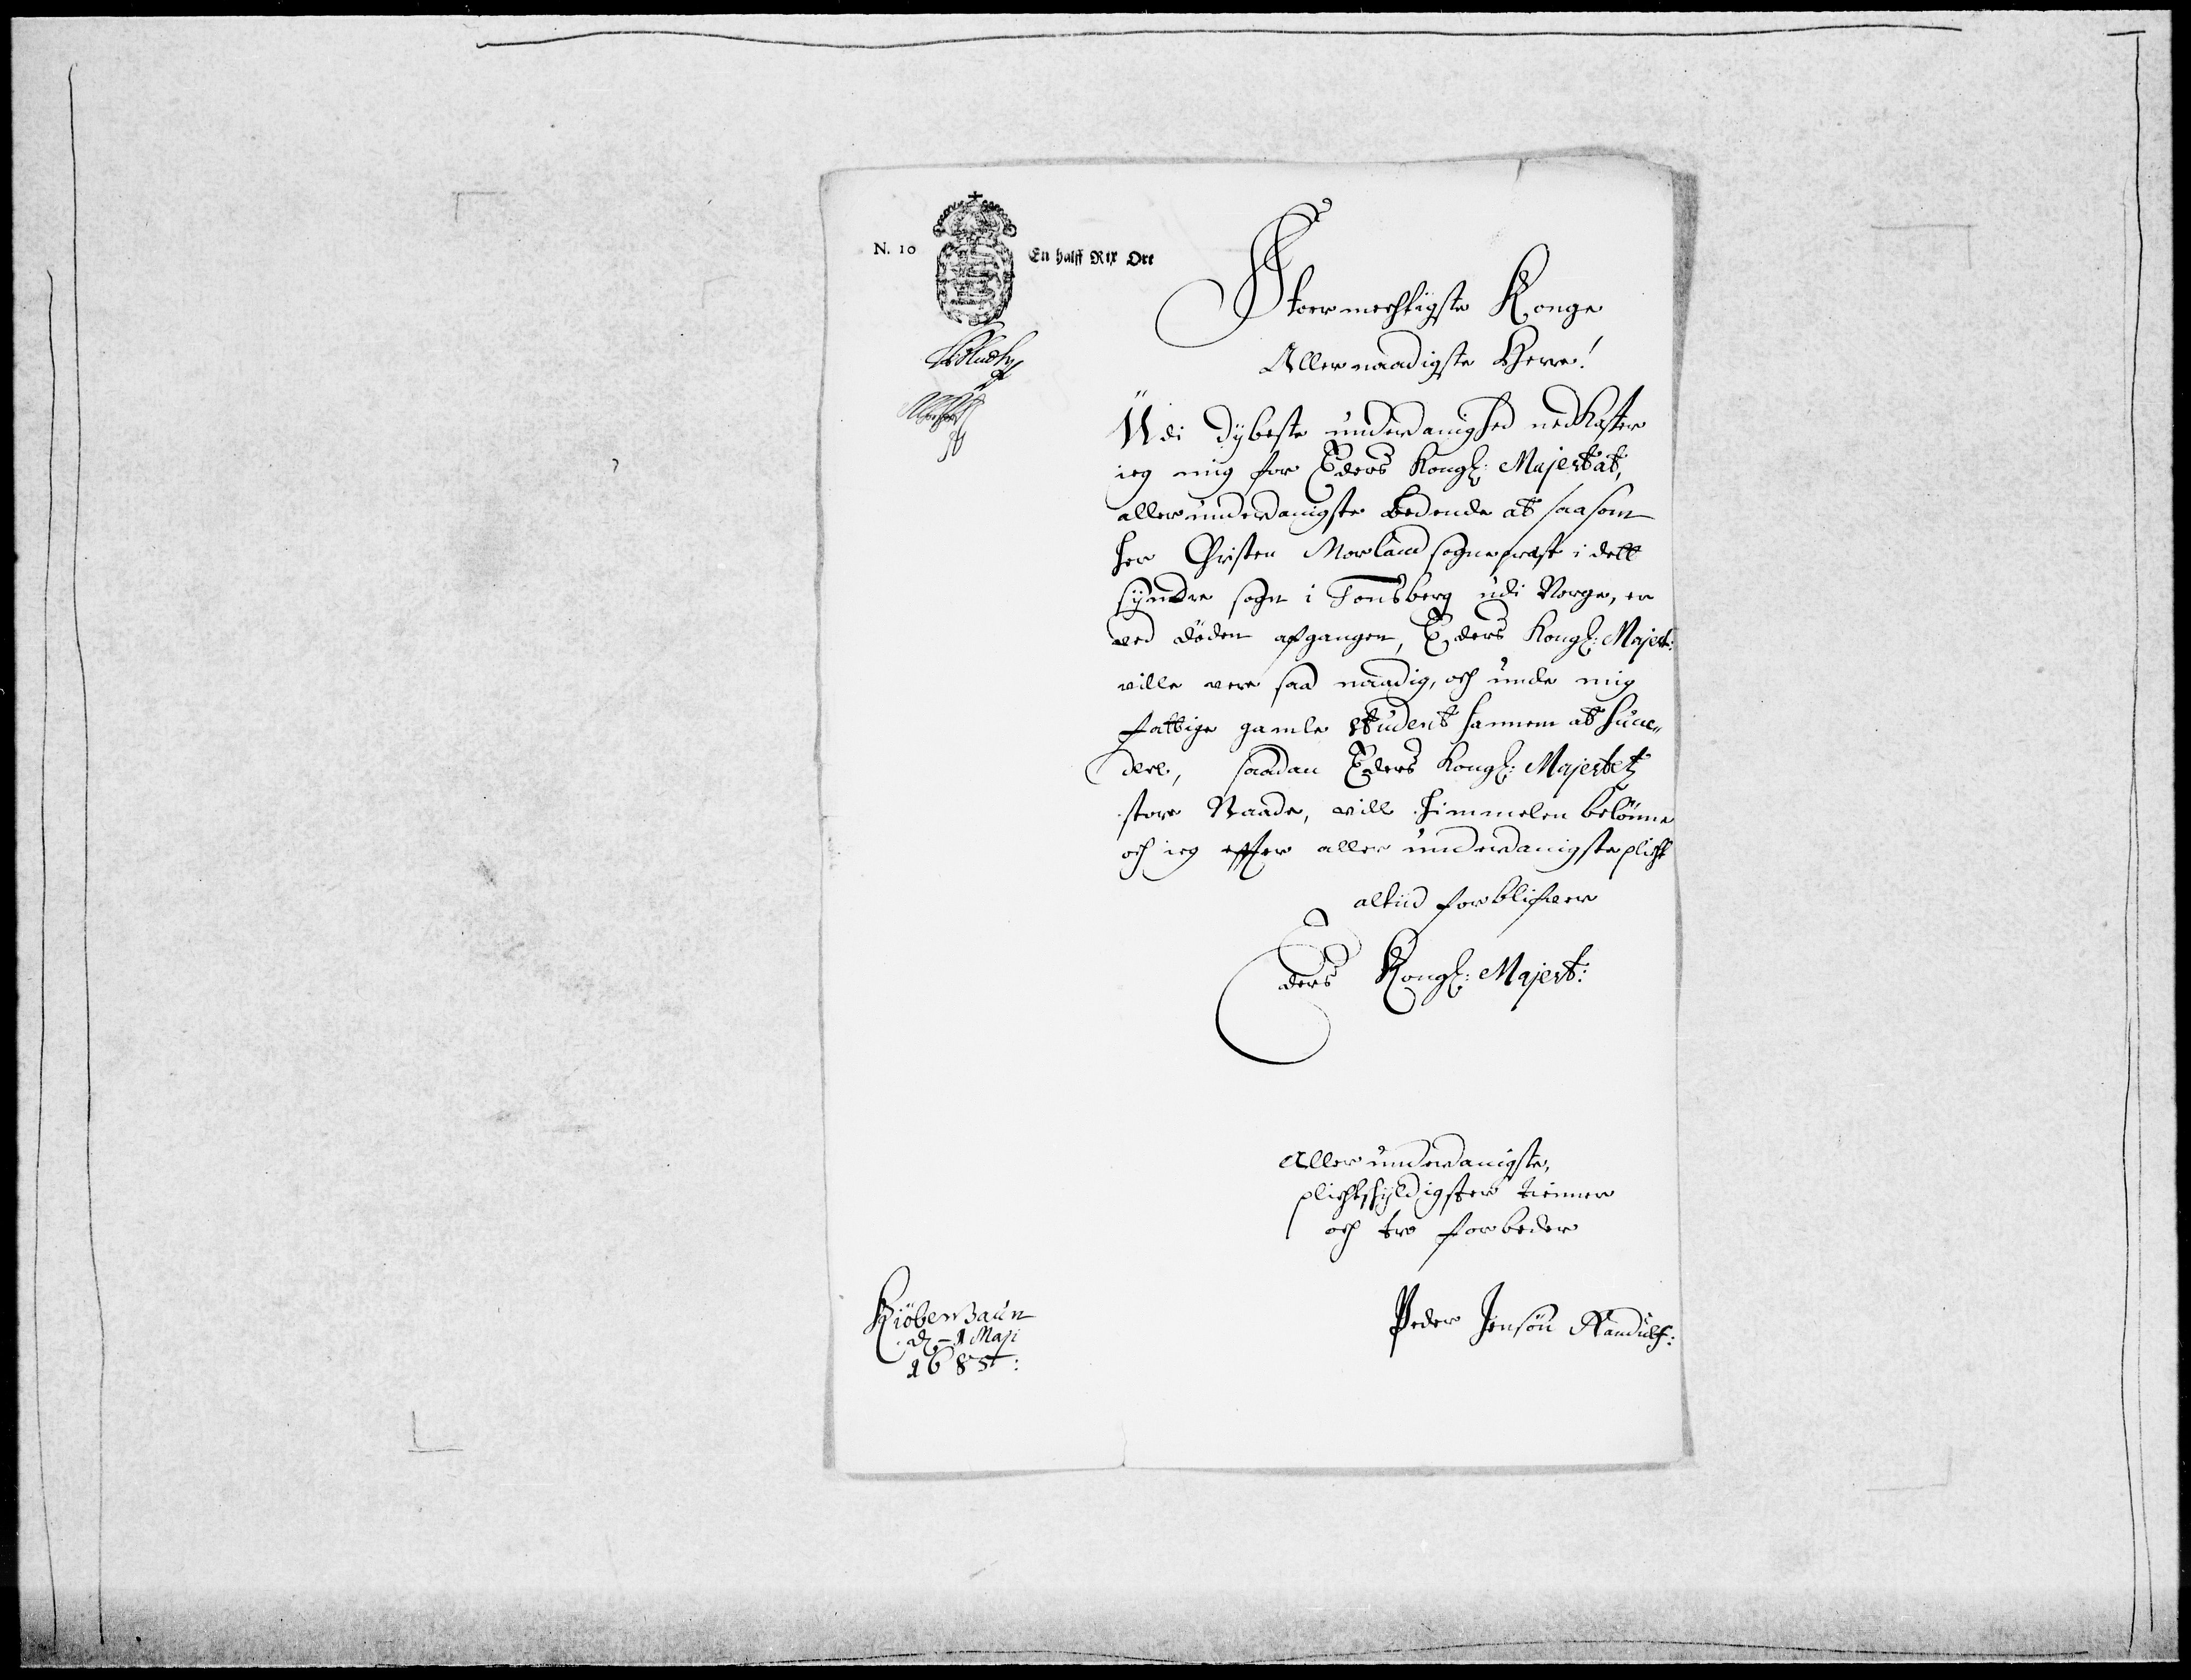 N. 10
En halff Rix Ort
Stoermechtigste Konge
Aller naadigste Herre!
Udi dÿbeste underdanighed nedkaster
ieg mig for Eders Kongl: Majestät,
aller underdanigste bedende at saasom
her Christen Morland sognepræst i dett
syndre sogn i Tonsberg udi Norge, er
ved döden afgangen, Eders Kongl: Majest:
wille vere saa naadig, och unde mig
fattige gamle student hannem at succe„
dere, saadan Eders Kongl: Majestetz
store Naade, will himmelen belönne
och ieg effter aller underdanigste plicht
altiid forblifver
Eders Kongl: Majest:
Aller underdanigste,
plichtskÿldigster tienner
och tro forbeder
Kiöbenhaun
d. 1 Maji
1685:
Peder Jensön Randulf: